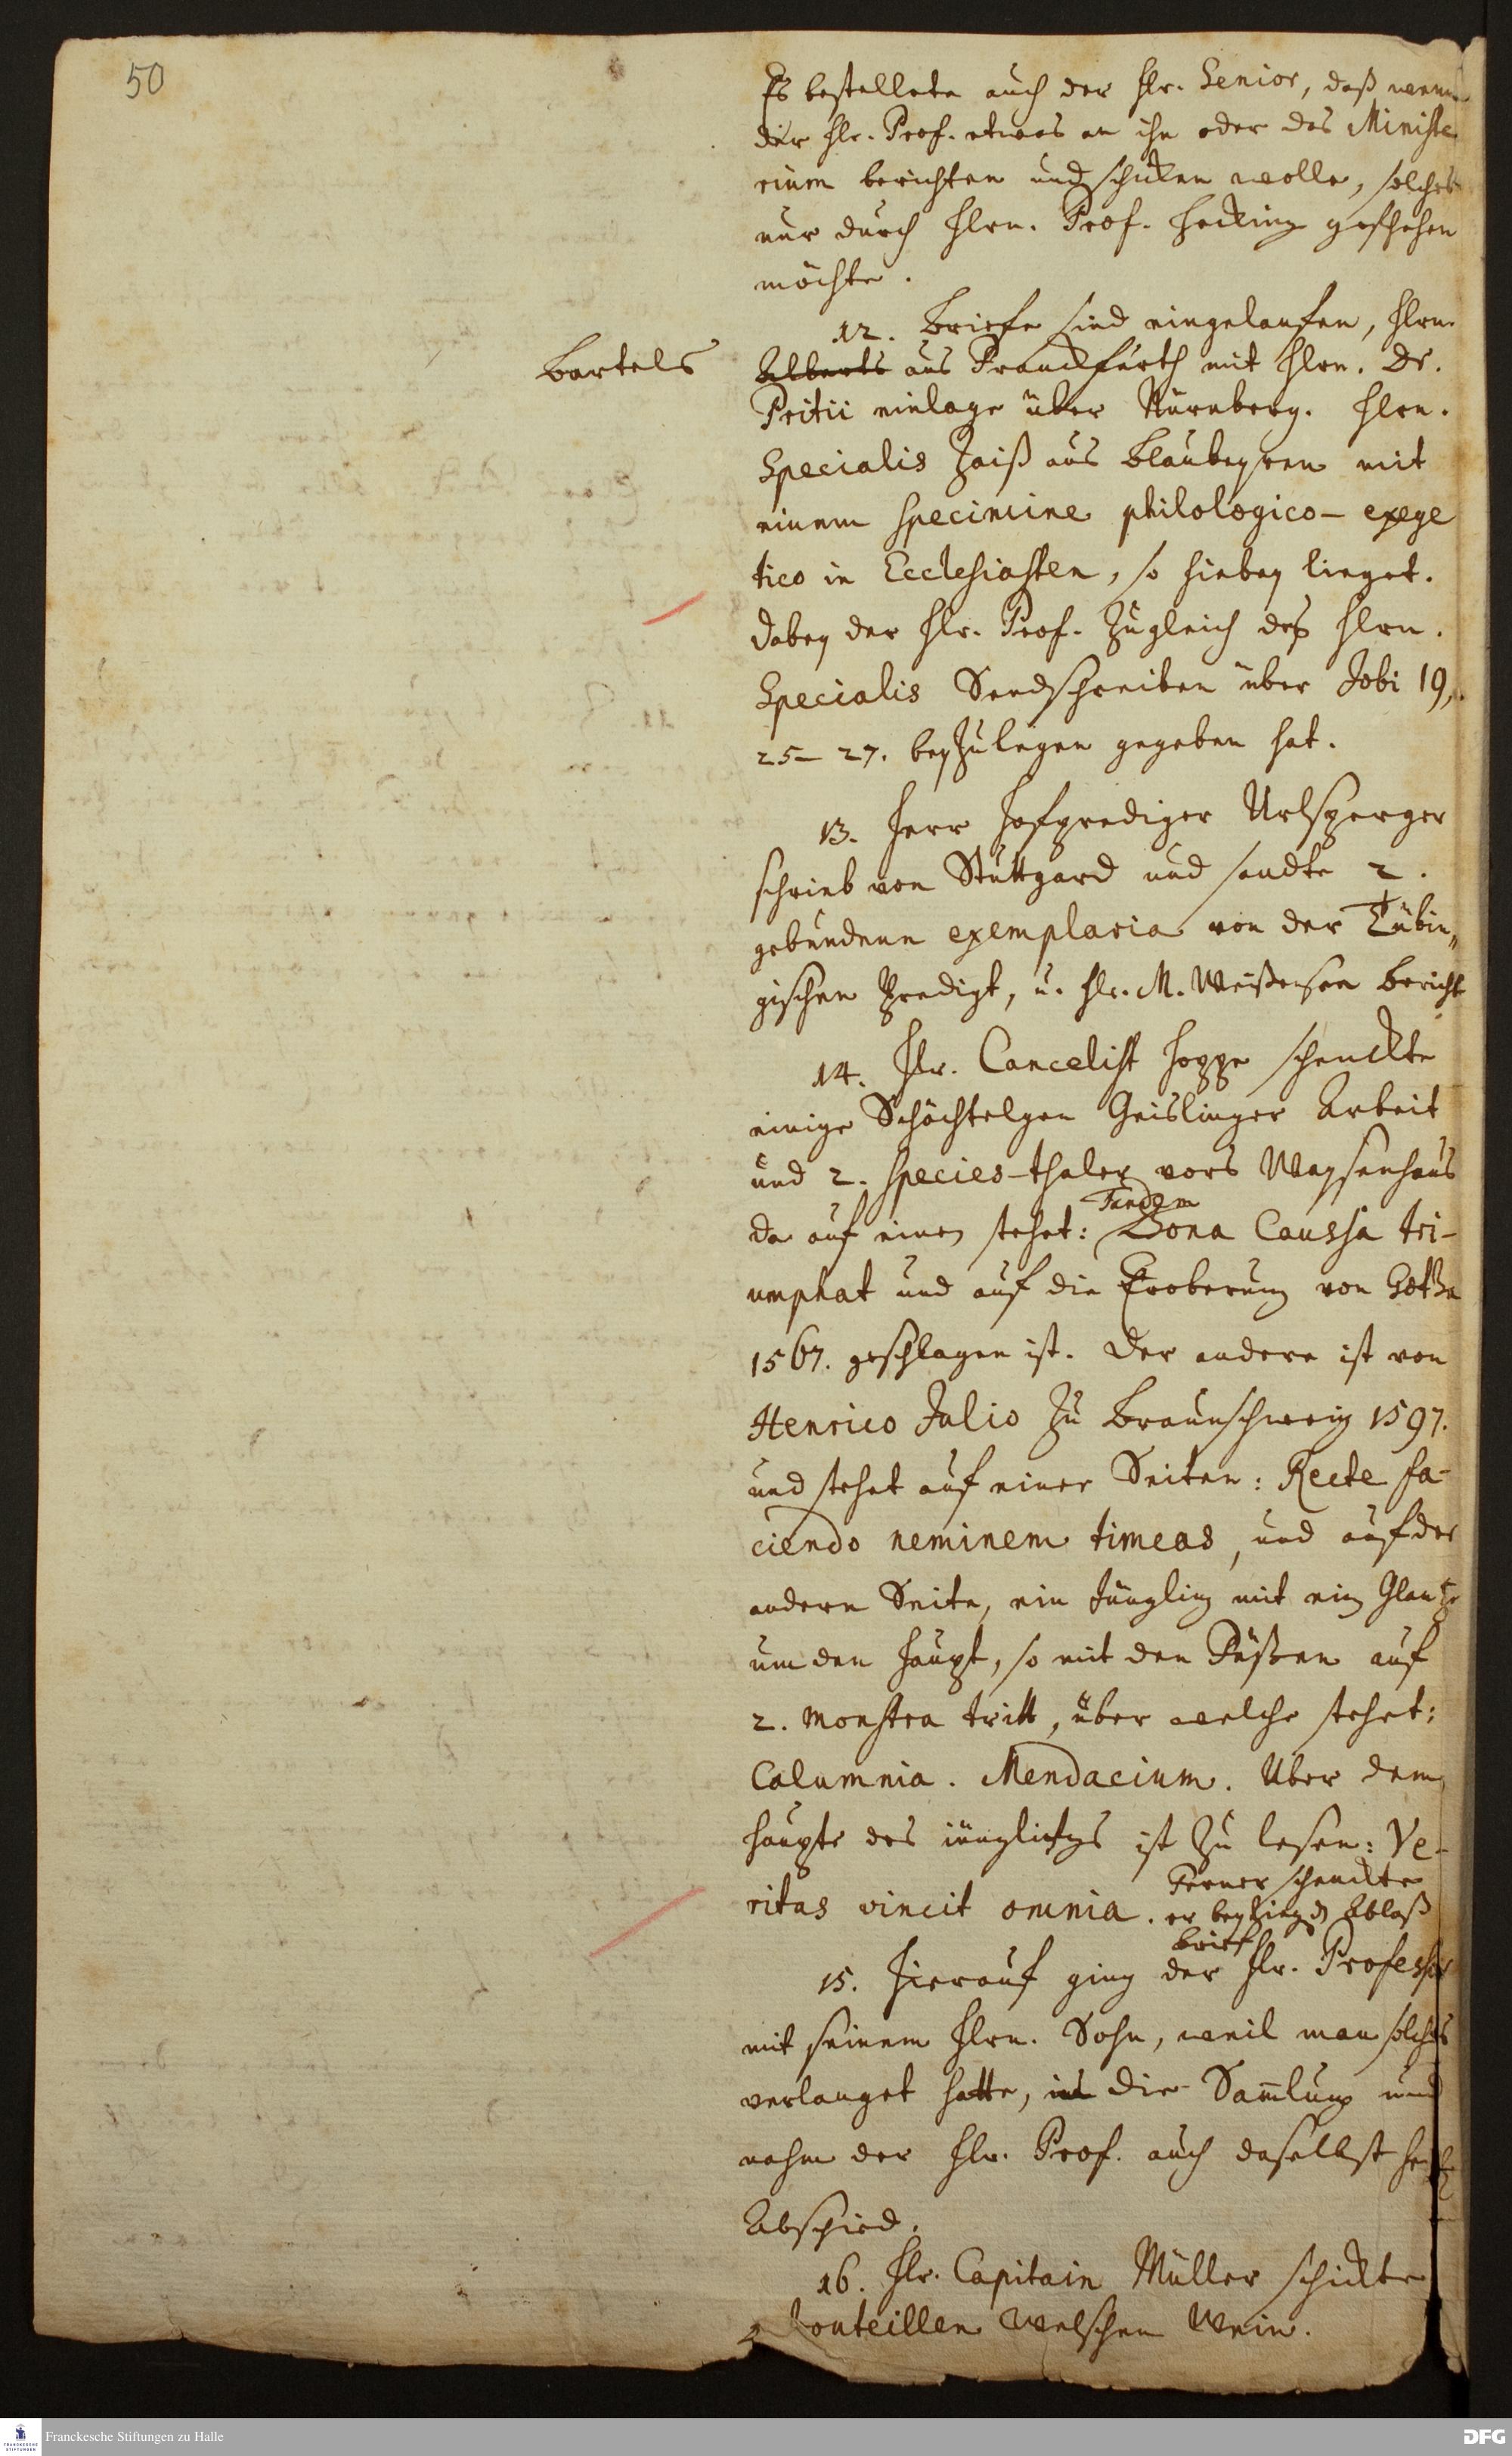 50
Es bestellete auch der Hr. Senior, daß wenn
der Hr. Prof. etwas an ihn oder das Ministe
rium berichten und schicken wolle, solches
nur durch Hrn. Prof. Hecking geschehen
möchte.
12. Briefe sind eingelaufen, Hrn.
Bartels
Alberts aus Franckfurth mit Hrn. Dr.
Pritii einlage über Nürnberg. Hrn.
Specialis Zeiß aus Blaubeyren mit
einem specimine philologico-exege
tico in Ecclesiasten, so hiebey lieget.
dabey der Hr. Prof. zugleich deß Hrn.
Specialis Sendschreiben über Jobi 19,
25-27. beyzulegen gegeben hat.
13. Herr Hofprediger Urlsperger
schrieb von Stuttgard und sandte 2.
gebundene exemplaria von der Tübin„
gischen Predigt, u. Hr. M. Weißensee Bericht
14. Hr. Cancelist Hoppe schenckte
einige Schächtelgen Geislinger Arbeit
und 2. species-thaler vors Waysenhaus
Tandem
da auf einen stehet: Bona Caussa tri-
umphat und auf die Eroberung von Gotha
1567. geschlagen ist. der andere ist von
Henrico Julio zu Braunschweig 1597.
und stehet auf einer Seiten: Recte fa-
ciendo neminem timeas, und auf der
andern Seite, ein Jüngling mit ein Glantze
um den Haupt, so mit den Füßen auf
2. monstra tritt, über welche stehet:
Calumnia. Mendacium. Uber dem
Haupte des jünglings ist zu lesen: Ve-
Ferner schenckte
ritas vincit omnia. er Ablaß
brief
15. Hierauf ging der Hr. Professor
mit seinem Hrn. Sohn, weil man solches
verlanget hatte, in die Sam̄lung und
nahm der Hr. Prof. auch daselbst
Abschied.
16. Hr. Capitain Müller schickte
2 bouteillen welschen Wein.
Franckesche Stiftungen zu Halle
DFG